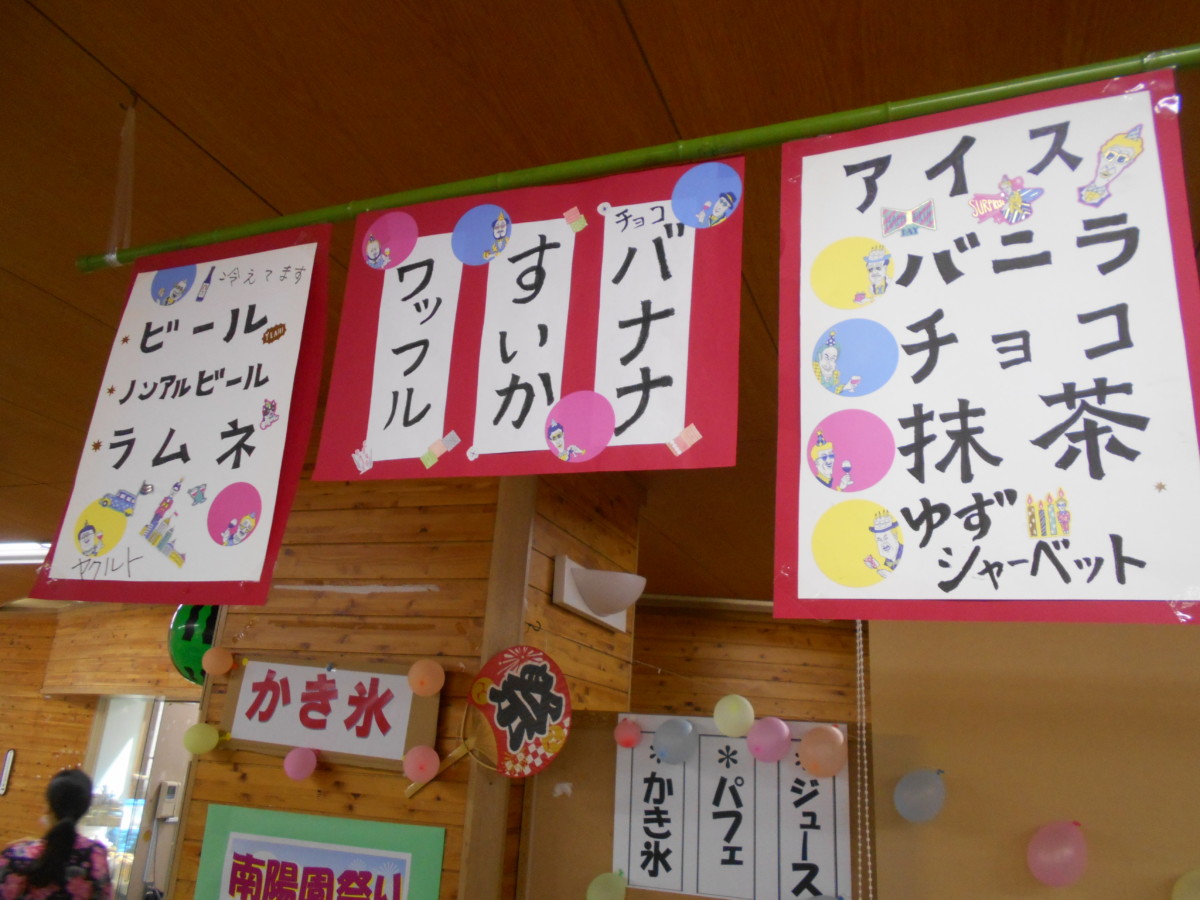 冷えてます
ビール
ノンアルビール
ラムネ
ヤクルト
チョコ
バナナ
すいか
ワッフル
アイス
バニラ
チョコ
抹茶
ゆず
シャーベット
かき氷
祭
＊ジュース
＊パフェ
＊かき氷
南陽園祭り